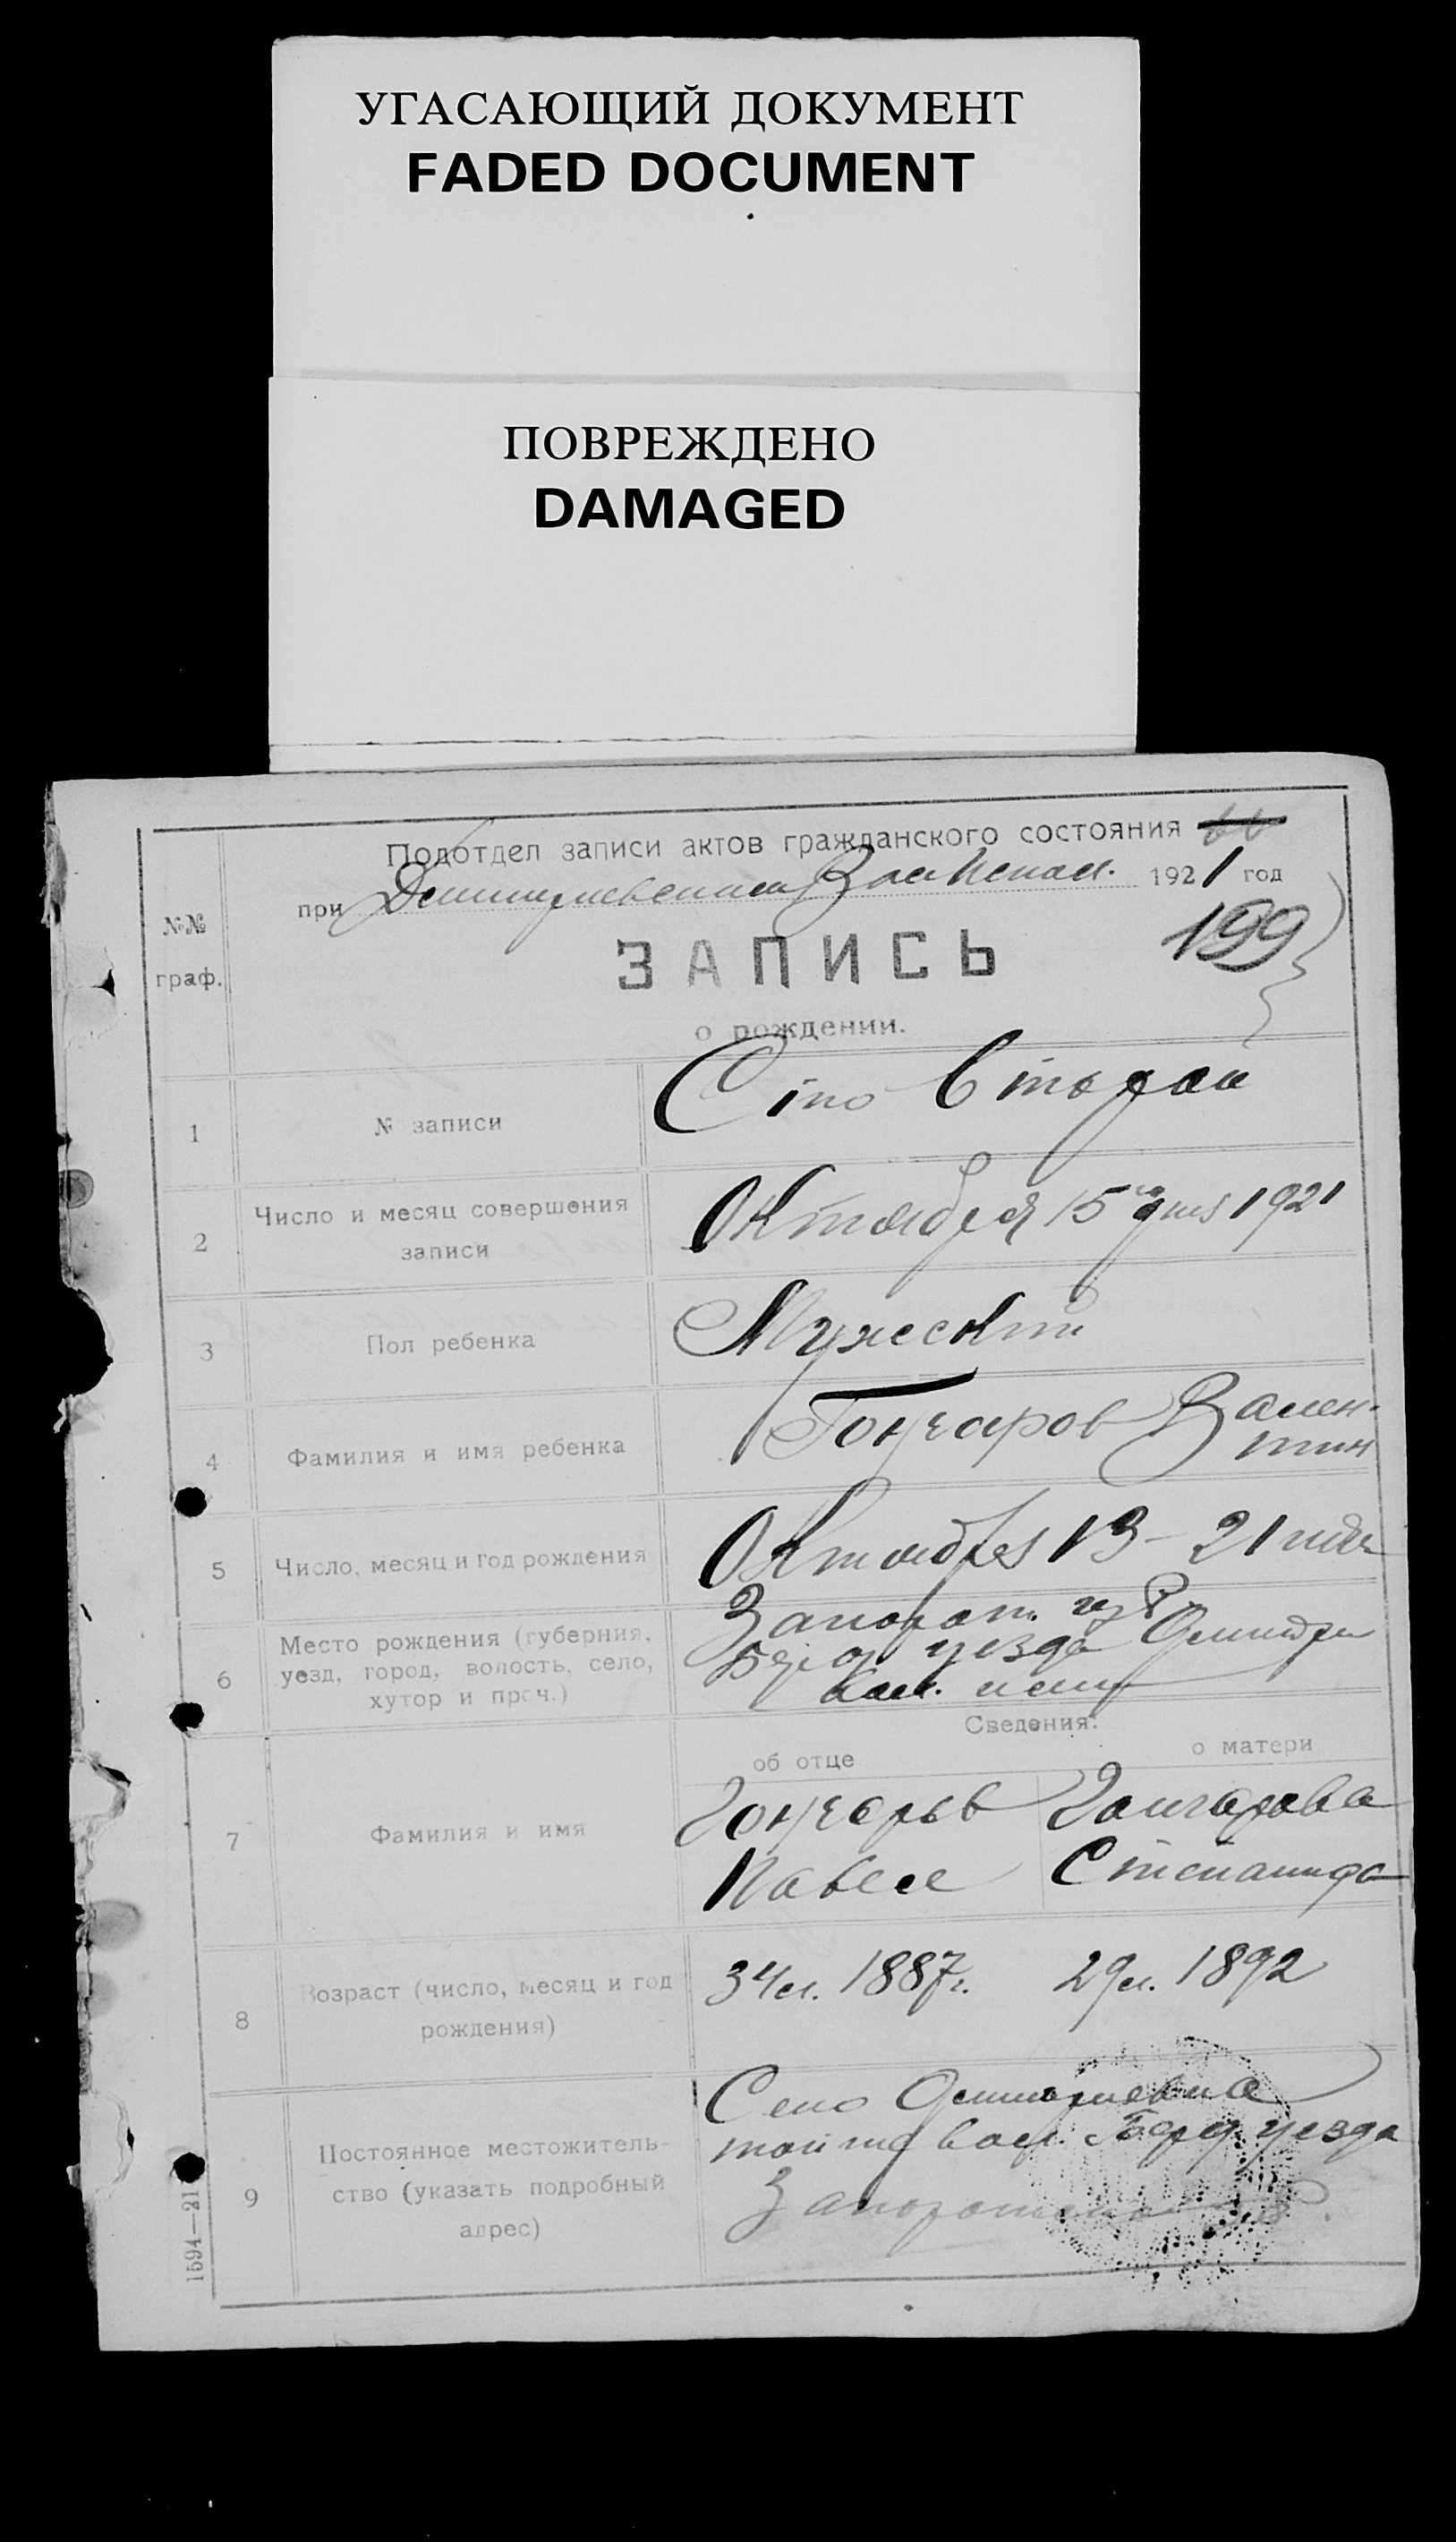 УГАСАЮЩИЙ ДОКУМЕНТ
FADED DOCUMENT
ПОВРЕЖДЕНО
DAMAGED
Подотдел записи актов гражданского состояния
при 1921 год
№№
граф.
ЗАПИСЬ
199
о рождении.
1
№ записи
Сто второй
2
Число и месяц совершения
записи
Октября 15го дня 1921
3
Пол ребенка
Мужеский
4
Фамилия и имя ребенка
Гончаров Вален-
тин
5
Число, месяц и год рождения
Октября 13 – 21 года
6
Место рождения (губерния,
уезд, город, волость, село,
хутор и проч.)
Запорож. губ
уезда
вол.
Сведения:
об отце
о матери
7
Фамилия и имя
Гончаров Гончарова
Павел Степанида
8
Возраст (число, месяц и год
рождения)
34 л. 1887 г. 29 л. 1892
9
Постоянное местожитель-
ство (указать подробный
адрес)
Село
той же вол. Берд. уезда
1594—21